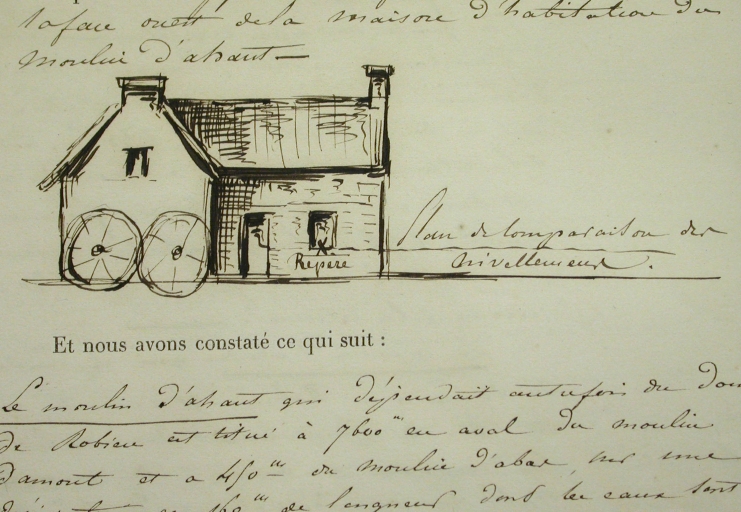 la face ouest de la maison d'habitation du
moulin d'ahaut —
Plan de Comparaison des
nivellements.
Repère
Et nous avons constaté ce qui suit :
Le moulin d'ahaut qui dépendait autrefois du
de Robien est situé à 7600m en aval du moulin
d'amont et a 450m du moulin d'abas, sur une
de longueur dont les eaux sont